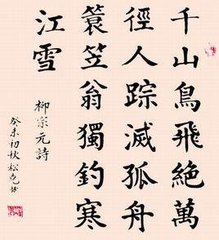 千山鳥飛絕萬
徑人踪滅孤舟
簑笠翁獨釣寒
江雪
柳宗元詩
癸未初秋松